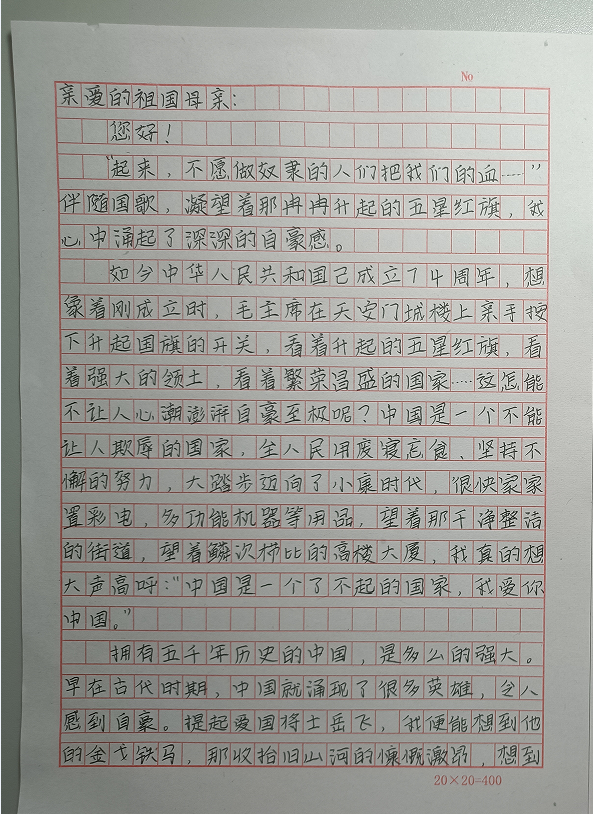 No
亲爱的祖国母亲:
您好!
“起来,不愿做奴隶的人们把我们的血……”
伴随国歌,凝望着那冉冉升起的五星红旗,我
心中涌起了深深的自豪感。
如今中华人民共和国已成立74周年,想
象着刚成立时,毛主席在天安门城楼上亲手按
下升起国旗的开关,看着升起的五星红旗,看
着强大的领土,看着繁荣昌盛的国家……这怎能
不让人心潮澎湃自豪至极呢?中国是一个不能
让人欺辱的国家,全人民用废寝忘食、坚持不
懈的努力,大踏步迈向了小康时代,很快家家
置彩电,多功能机器等用品,望着那干净整洁
的街道,望着鳞次栉比的高楼大厦,我真的想
大声高呼:“中国是一个了不起的国家,我爱你
中国。”
拥有五千年历史的中国,是多么的强大。
早在古代时期,中国就涌现了很多英雄,令人
感到自豪。提起爱国将士岳飞,我便能想到他
的金戈铁马,那收拾旧山河的慷慨激昂,想到
20×20=400